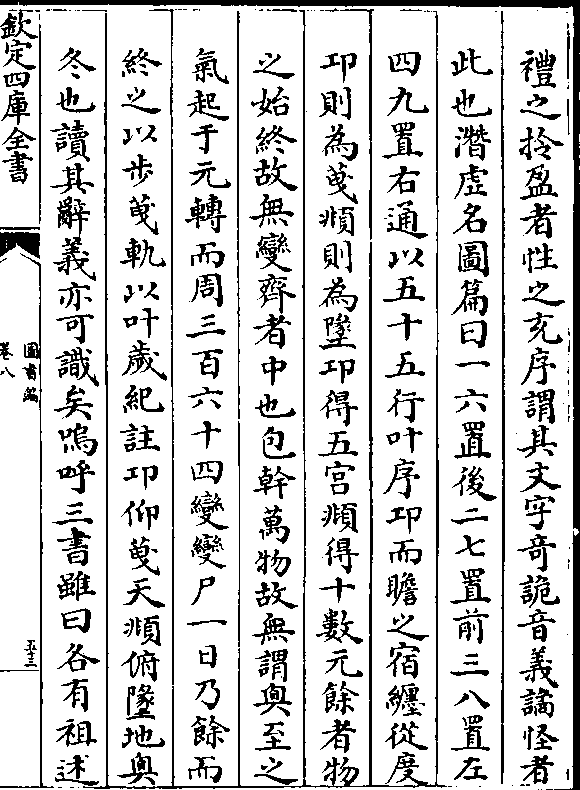 禮之拎盈者性之充序謂其文字竒詭音義譎怪者
此也潛虛名圖篇曰一六置後二七置前三八置左
四九置右通以五十五行叶序卬而瞻之宿纏從度
卬則為䒾頫則為墬卬得五宫頫得十數元餘者物
之始終故無變齊者中也包斡萬物故無謂㒰至之
氣起于元轉而周三百六十四變變尸一日乃餘而
終之以步䒾軌以叶歲紀註卬仰䒾天頫俯墬地㒰
冬也讀其辭義亦可識矣嗚呼三書雖曰各有祖述
欽定四庫全書
圖書編
卷八
五十三